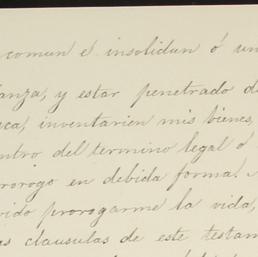 comun é insolidun ó un
anza, y estar penetrado de
ca, inventarien mis bienes,
ntro del termino legal ó
rorogo en debida forma.
vido prorogarme la vida,
as clausulas de este testam